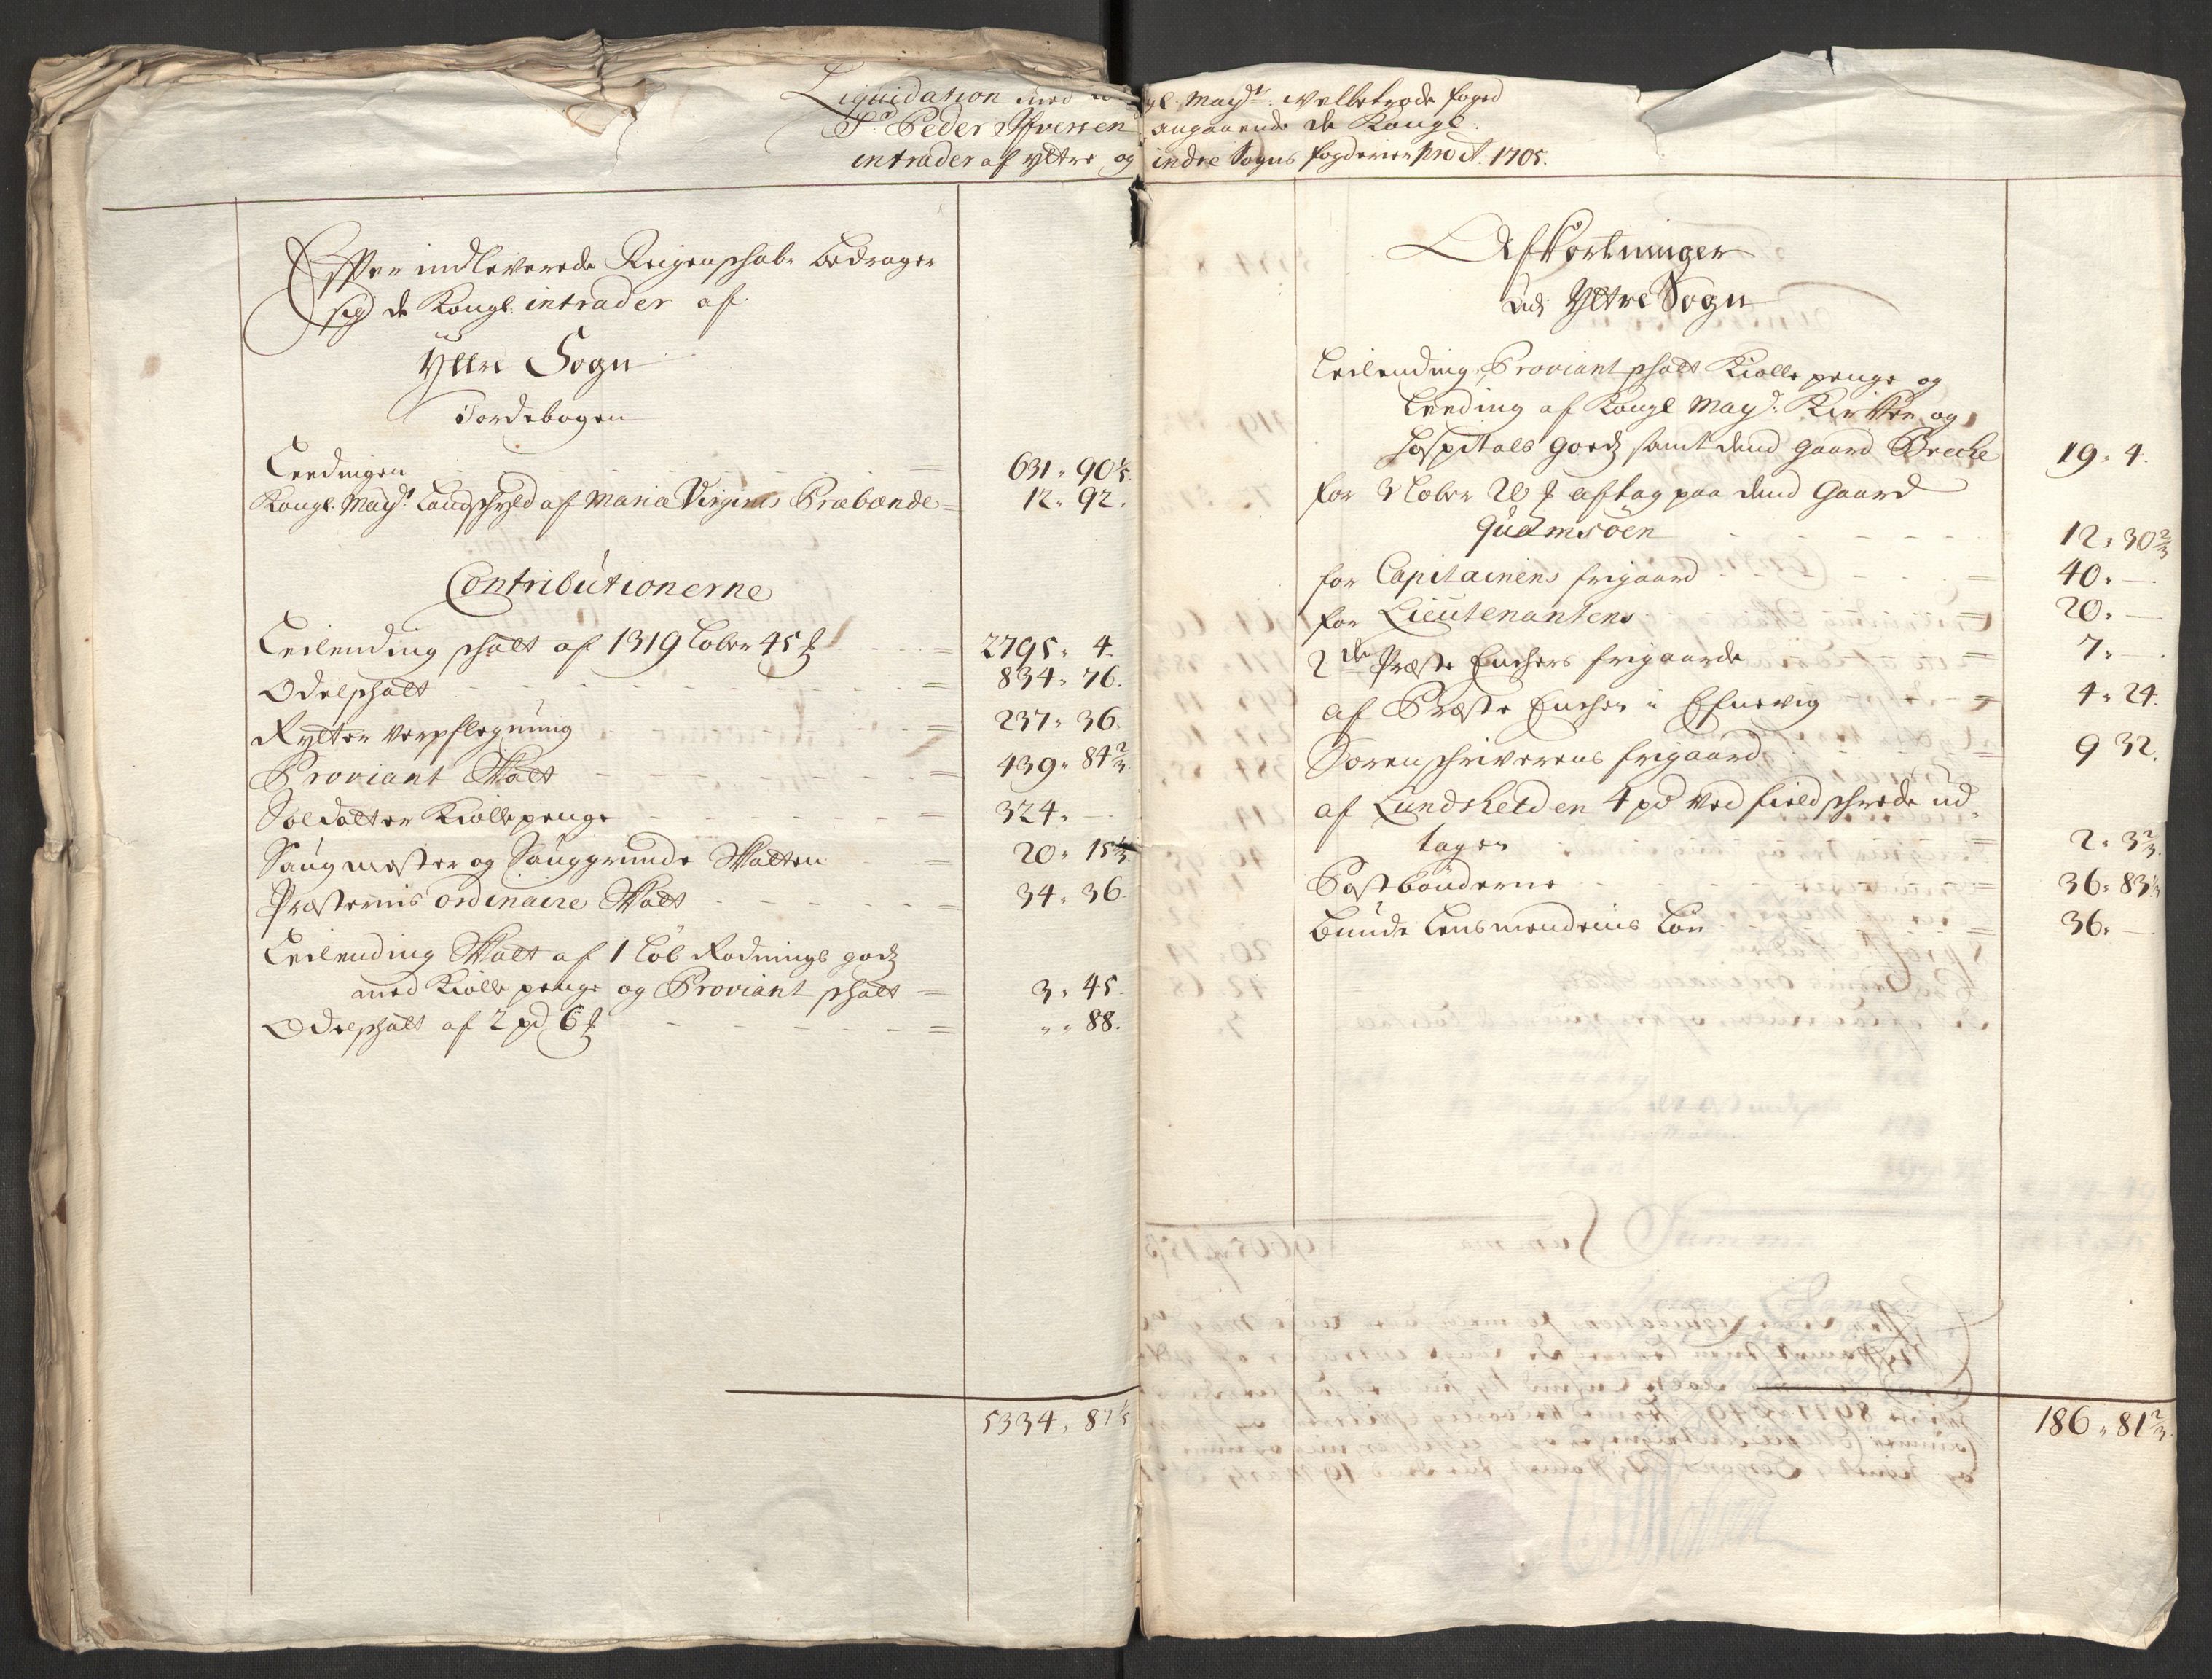 Liquidation med Kongl. Mayts. Velbetrode foged
Sr. Peder Ifversen angaaende de Kongl.
intrader af yttre og indre Sogns fogderier pro Ao. 1705.
Effter indleverede Reigenschabr bedrager
sig de Kongl. intrader af
Yttre Sogn
Jordebogen
Leedingen = 631 " 90 1/5
Kongl. Mayts Landschyld af Maria Virginis Præbende = 12 " 92.
Contributionerne
Leilending schatt af 1319 Løber 45 = 2795 " 4.
Odelschatt = 834 " 76.
Rytter verpflegning = 237 " 36.
Proviant Skatt = 439 " 84 2/3
Soldatter Kiolle penge = 324 " —
Saugmester og Sauggrunde Skatten = 20 " 15 1/3
Præsternis ordinaire Skatt = 34 " 36.
Leilending Skatt af 1 Løb Rødnings godz
med Kiolle penge og Proviant schatt = 3 " 45.
Odelschatt af 2 pd 6 = " " 88.
5334 " 87 1/5
Afkortninger
Udj Yttre Sogn
Leilending, Proviant schatt Kiolle penge og
Leeding af Kongl Mayts. Kircken og
Hospitals goedz samt dend gaard Breche 19 " 4.
for 3 Løber 20 aftag paa dend Gaard
Qvamsøen 12 " 30 2/3
for Capitainens frigaard = 40 " —
for Lieutenantens = 20 " —
2de Præste Enchers frigaarde = 7 " —
af Præste Enchen i Efnevig = 4 " 24.
Sorenschriverens frigaard 9 32.
af Lundsheiden 4 pd ved field schrede ud
tagen = 2 " 3 2/3
Postbønderne = 36 " 83 1/3
Bunde Lensmendenis Løn = 36 " —
186 " 81 2/3